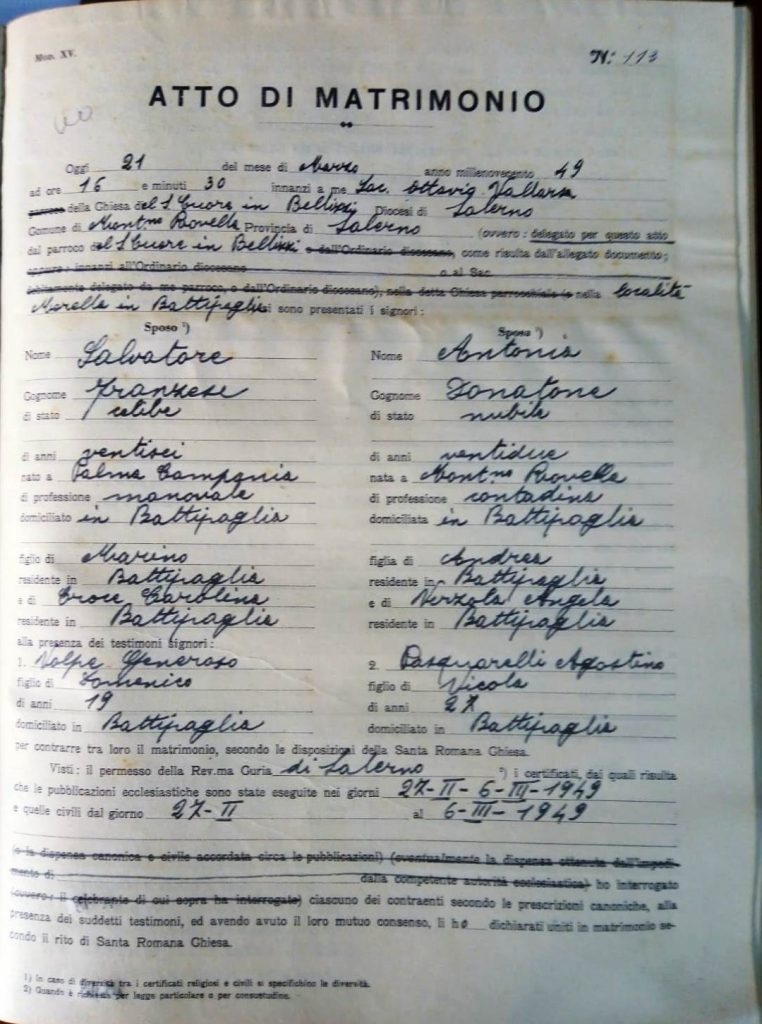 Mod. XV.
N: 113
ATTO DI MATRIMONIO
no
Oggi 21 del mese di Marzo anno millenovecento 49
ad ore 16 e minuti 30 innanzi a me Sac. Ottavio
parroco della Chiesa del S Cuore in Bellizzi Diocesi di Salerno
Comune di Mont.no Rovella Provincia di Salerno (ovvero: delegato per questo atto
dal parroco del S Cuore in Bellizzi o dall'Ordinario diocesano, come risulta dall'allegato documento;
oppure: innanzi all'Ordinario diocesano o al Sac.
debitamente delegato da me parroco, o dall'Ordinario diocesano), nella detta Chiesa parrocchiale (o nella località
Morella in Battipaglia si sono presentati i signori:
Sposo ¹)
Sposa ¹)
Nome Salvatore
Nome Antonia
Cognome Franzese
Cognome Donatone
di stato celibe
di stato nubile
di anni ventisei
di anni ventidue
nato a Palma Campania
nata a Mont.no Rovella
di professione manovale
di professione contadina
domiciliato in Battipaglia
domiciliata in Battipaglia
figlio di Marino
figlia di Andrea
residente in Battipaglia
residente in Battipaglia
e di Croce Carolina
e di Verzola Angela
residente in Battipaglia
residente in Battipaglia
alla presenza dei testimoni signori:
1. Volpe Generoso
2. Pasquarelli Agostino
figlio di Domenico
figlio di Nicola
di anni 19
di anni 27
domiciliato in Battipaglia
domiciliato in Battipaglia
per contrarre tra loro il matrimonio, secondo le disposizioni della Santa Romana Chiesa.
Visti: il permesso della Rev.ma Curia di Salerno ²) i certificati, dai quali risulta
che le pubblicazioni ecclesiastiche sono state eseguite nei giorni 27-II - 6-III-1949
e quelle civili dal giorno 27-II al 6-III-1949
(o la dispensa canonica e civile accordata circa le pubblicazioni) (eventualmente la dispensa ottenuta dall'impedi-
mento di dalla competente autorità ecclesiastica) ho interrogato
(ovvero: il celebrante di cui sopra ha interrogato) ciascuno dei contraenti secondo le prescrizioni canoniche, alla
presenza dei suddetti testimoni, ed avendo avuto il loro mutuo consenso, li ho dichiarati uniti in matrimonio se-
condo il rito di Santa Romana Chiesa.
1) In caso di diversità tra i certificati religiosi e civili si specifichino le diversità.
2) Quando è richiesto per legge particolare o per consuetudine.